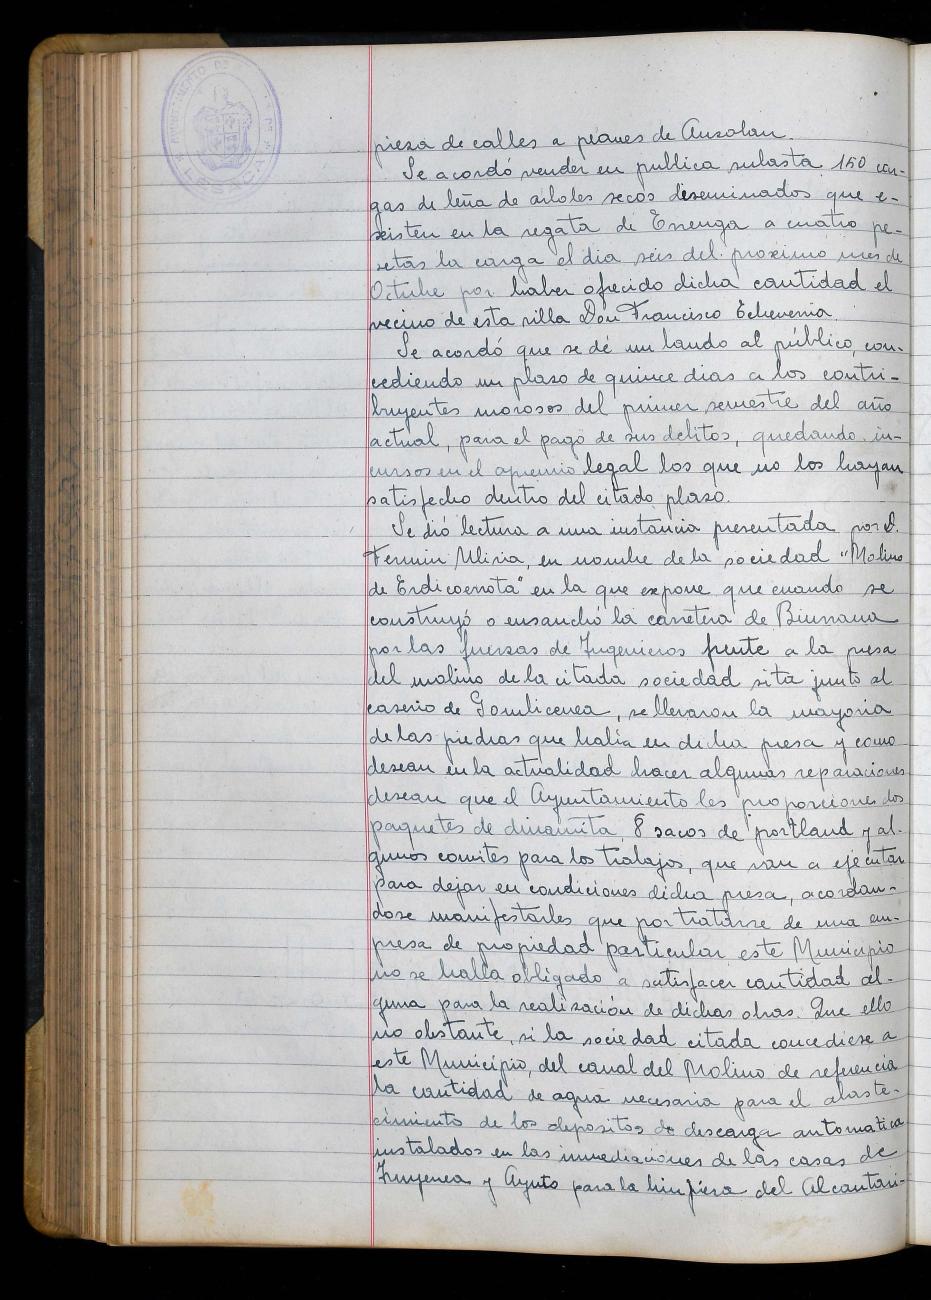 pieza de calles a peones de Ansolan.
Se acordó vender en publica subasta 150 car-
gas de leña de arboles secos diseminados que e-
xisten en la regata de Errenga a cuatro pe-
setas la carga el dia seis del proximo mes de
Octubre por haber ofrecido dicha cantidad el
vecino de esta villa Don Francisco Echeverria.
Se acordó que se dé un bando al público, con-
cediendo un plazo de quince dias a los contri-
buyentes morosos del primer semestre del año
actual, para el pago de sus debitos, quedando in-
cursos en el apremio legal los que no los hayan
satisfecho dentro del citado plazo.
Se dió lectura a una instancia presentada por D.
Fermin Mivia, en nombre de la sociedad "Molino
de Erdicoerrota" en la que expone que cuando se
construyó o ensanchó la carretera de
por las fuerzas de Ingenieros frente a la presa
del molino de la citada sociedad sita junto al
caserio de Gomlicenea, se llevaron la mayoria
de las piedras que habia en dicha presa y como
desean en la actualidad hacer algunas reparaciones
desean que el Ayuntamiento les proporcione dos
paquetes de dinamita, 8 sacos de portland y al-
gunos comites para los trabajos, que van a ejecutar
para dejar en condiciones dicha presa, acordan-
dose manifestarles que por tratarse de una em-
presa de propiedad particular este Municipio
no se halla obligado a satisfacer cantidad al-
guna para la realización de dichas obras. Que ello
no obstante, si la sociedad citada concediese a
este Municipio, del canal del Molino de referencia
la cantidad de agua necesaria para el abaste-
cimiento de los depositos de descarga automatica
instalados en las inmediaciones de las casas de
y Aynto para la limpieza del Alcantari-
AYUNTAMIENTO DE
LESACA